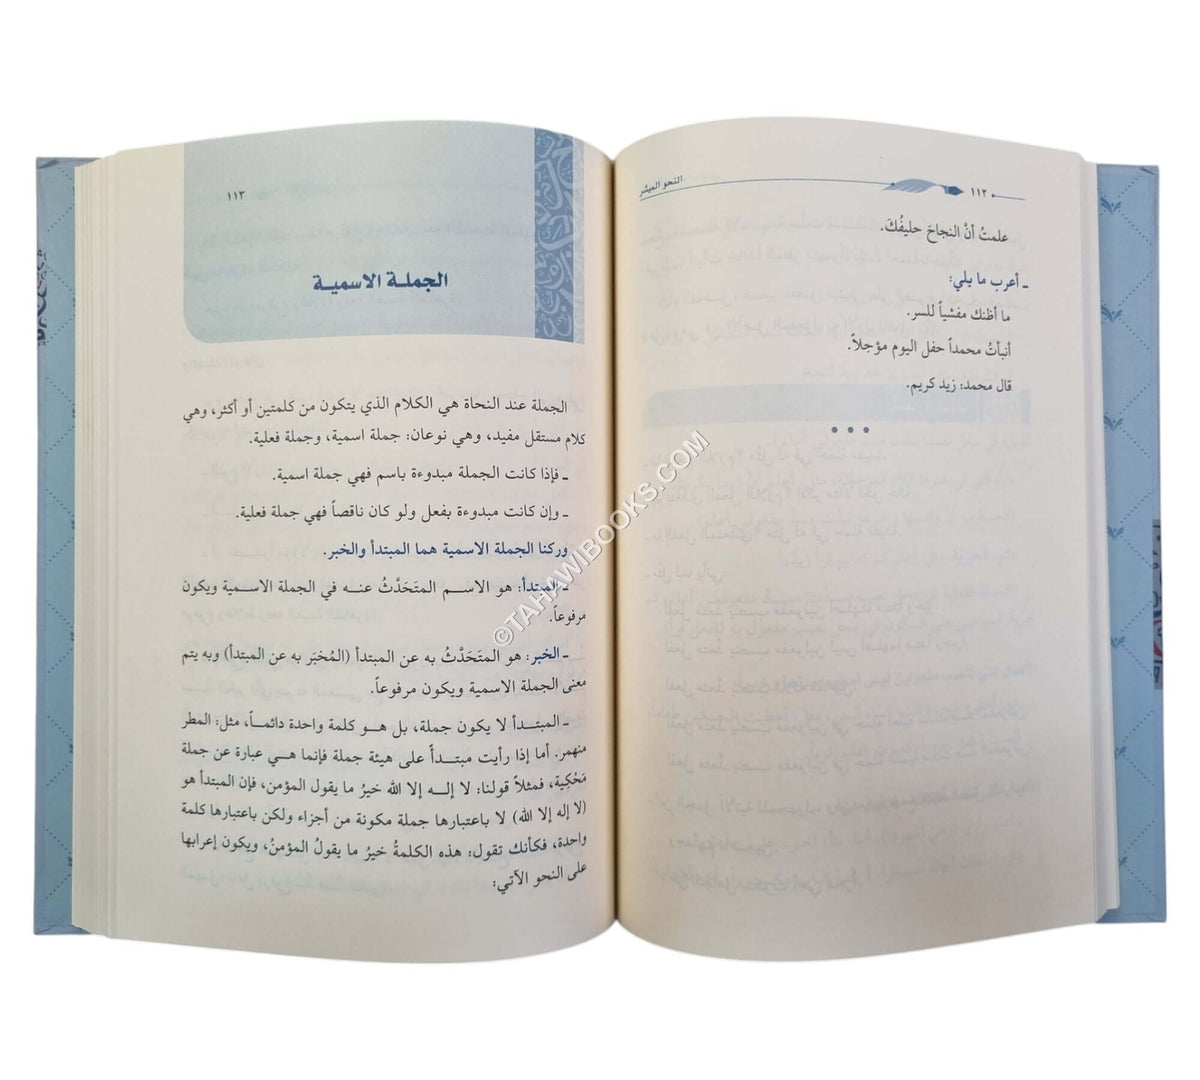 ١١٢
النحو الميسر
علمتُ أنَّ النجاحَ حليفُكَ.
ـ أعرب ما يلي:
ما أظنك مفشياً للسر.
أنبأتُ محمداً حفل اليوم مؤجلاً.
قال محمد: زيد كريم.
١١٣
الجملة الاسمية
الجملة عند النحاة هي الكلام الذي يتكون من كلمتين أو أكثر، وهي
كلام مستقل مفيد، وهي نوعان: جملة اسمية، وجملة فعلية.
ـ فإذا كانت الجملة مبدوءة باسم فهي جملة اسمية.
ـ وإن كانت مبدوءة بفعل ولو كان ناقصاً فهي جملة فعلية.
وركنا الجملة الاسمية هما المبتدأ والخبر.
ـ المبتدأ: هو الاسم المتَحَدَّثُ عنه في الجملة الاسمية ويكون
مرفوعاً.
ـ الخبر: هو المتَحَدَّثُ به عن المبتدأ (المُخبَر به عن المبتدأ) وبه يتم
معنى الجملة الاسمية ويكون مرفوعاً.
ـ المبتدأ لا يكون جملة، بل هو كلمة واحدة دائماً، مثل: المطر
منهمر. أما إذا رأيت مبتدأً على هيئة جملة فإنما هي عبارة عن جملة
مَحْكِية، فمثلاً قولنا: لا إله إلا الله خيرُ ما يقول المؤمن، فإن المبتدأ هو
(لا إله إلا الله) لا باعتبارها جملة مكونة من أجزاء ولكن باعتبارها كلمة
واحدة، فكأنك تقول: هذه الكلمةُ خيرُ ما يقولُ المؤمنُ، ويكون إعرابها
على النحو الآتي:
©TAHAWIBOOKS.COM